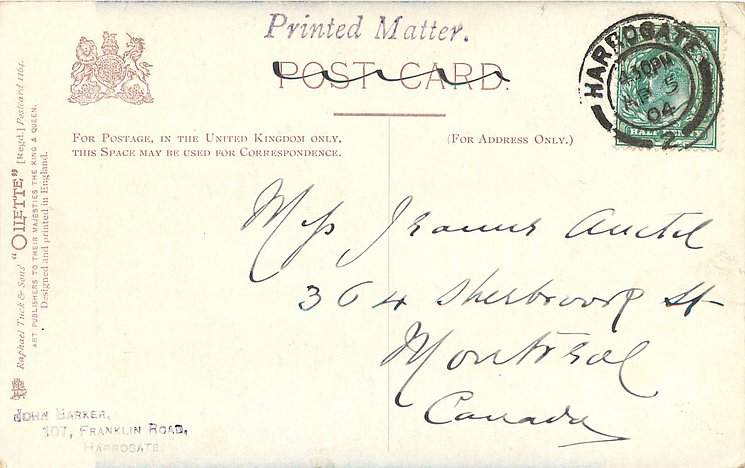 Printed Matter.
POST CARD.
HARROGATE
4.30PM
AP 5
04
2
HALFPENNY
FOR POSTAGE, IN THE UNITED KINGDOM ONLY,
THIS SPACE MAY BE USED FOR CORRESPONDENCE.
(FOR ADDRESS ONLY.)
Raphael Tuck & Sons' "OILETTE" [Regd.] Postcard 1164.
ART PUBLISHERS TO THEIR MAJESTIES THE KING & QUEEN.
Designed and printed in England.
Miss Jeanne Auctel
364 Sherbrooke St
Montreal
Canada
JOHN BARKER,
107, FRANKLIN ROAD,
HARROGATE.